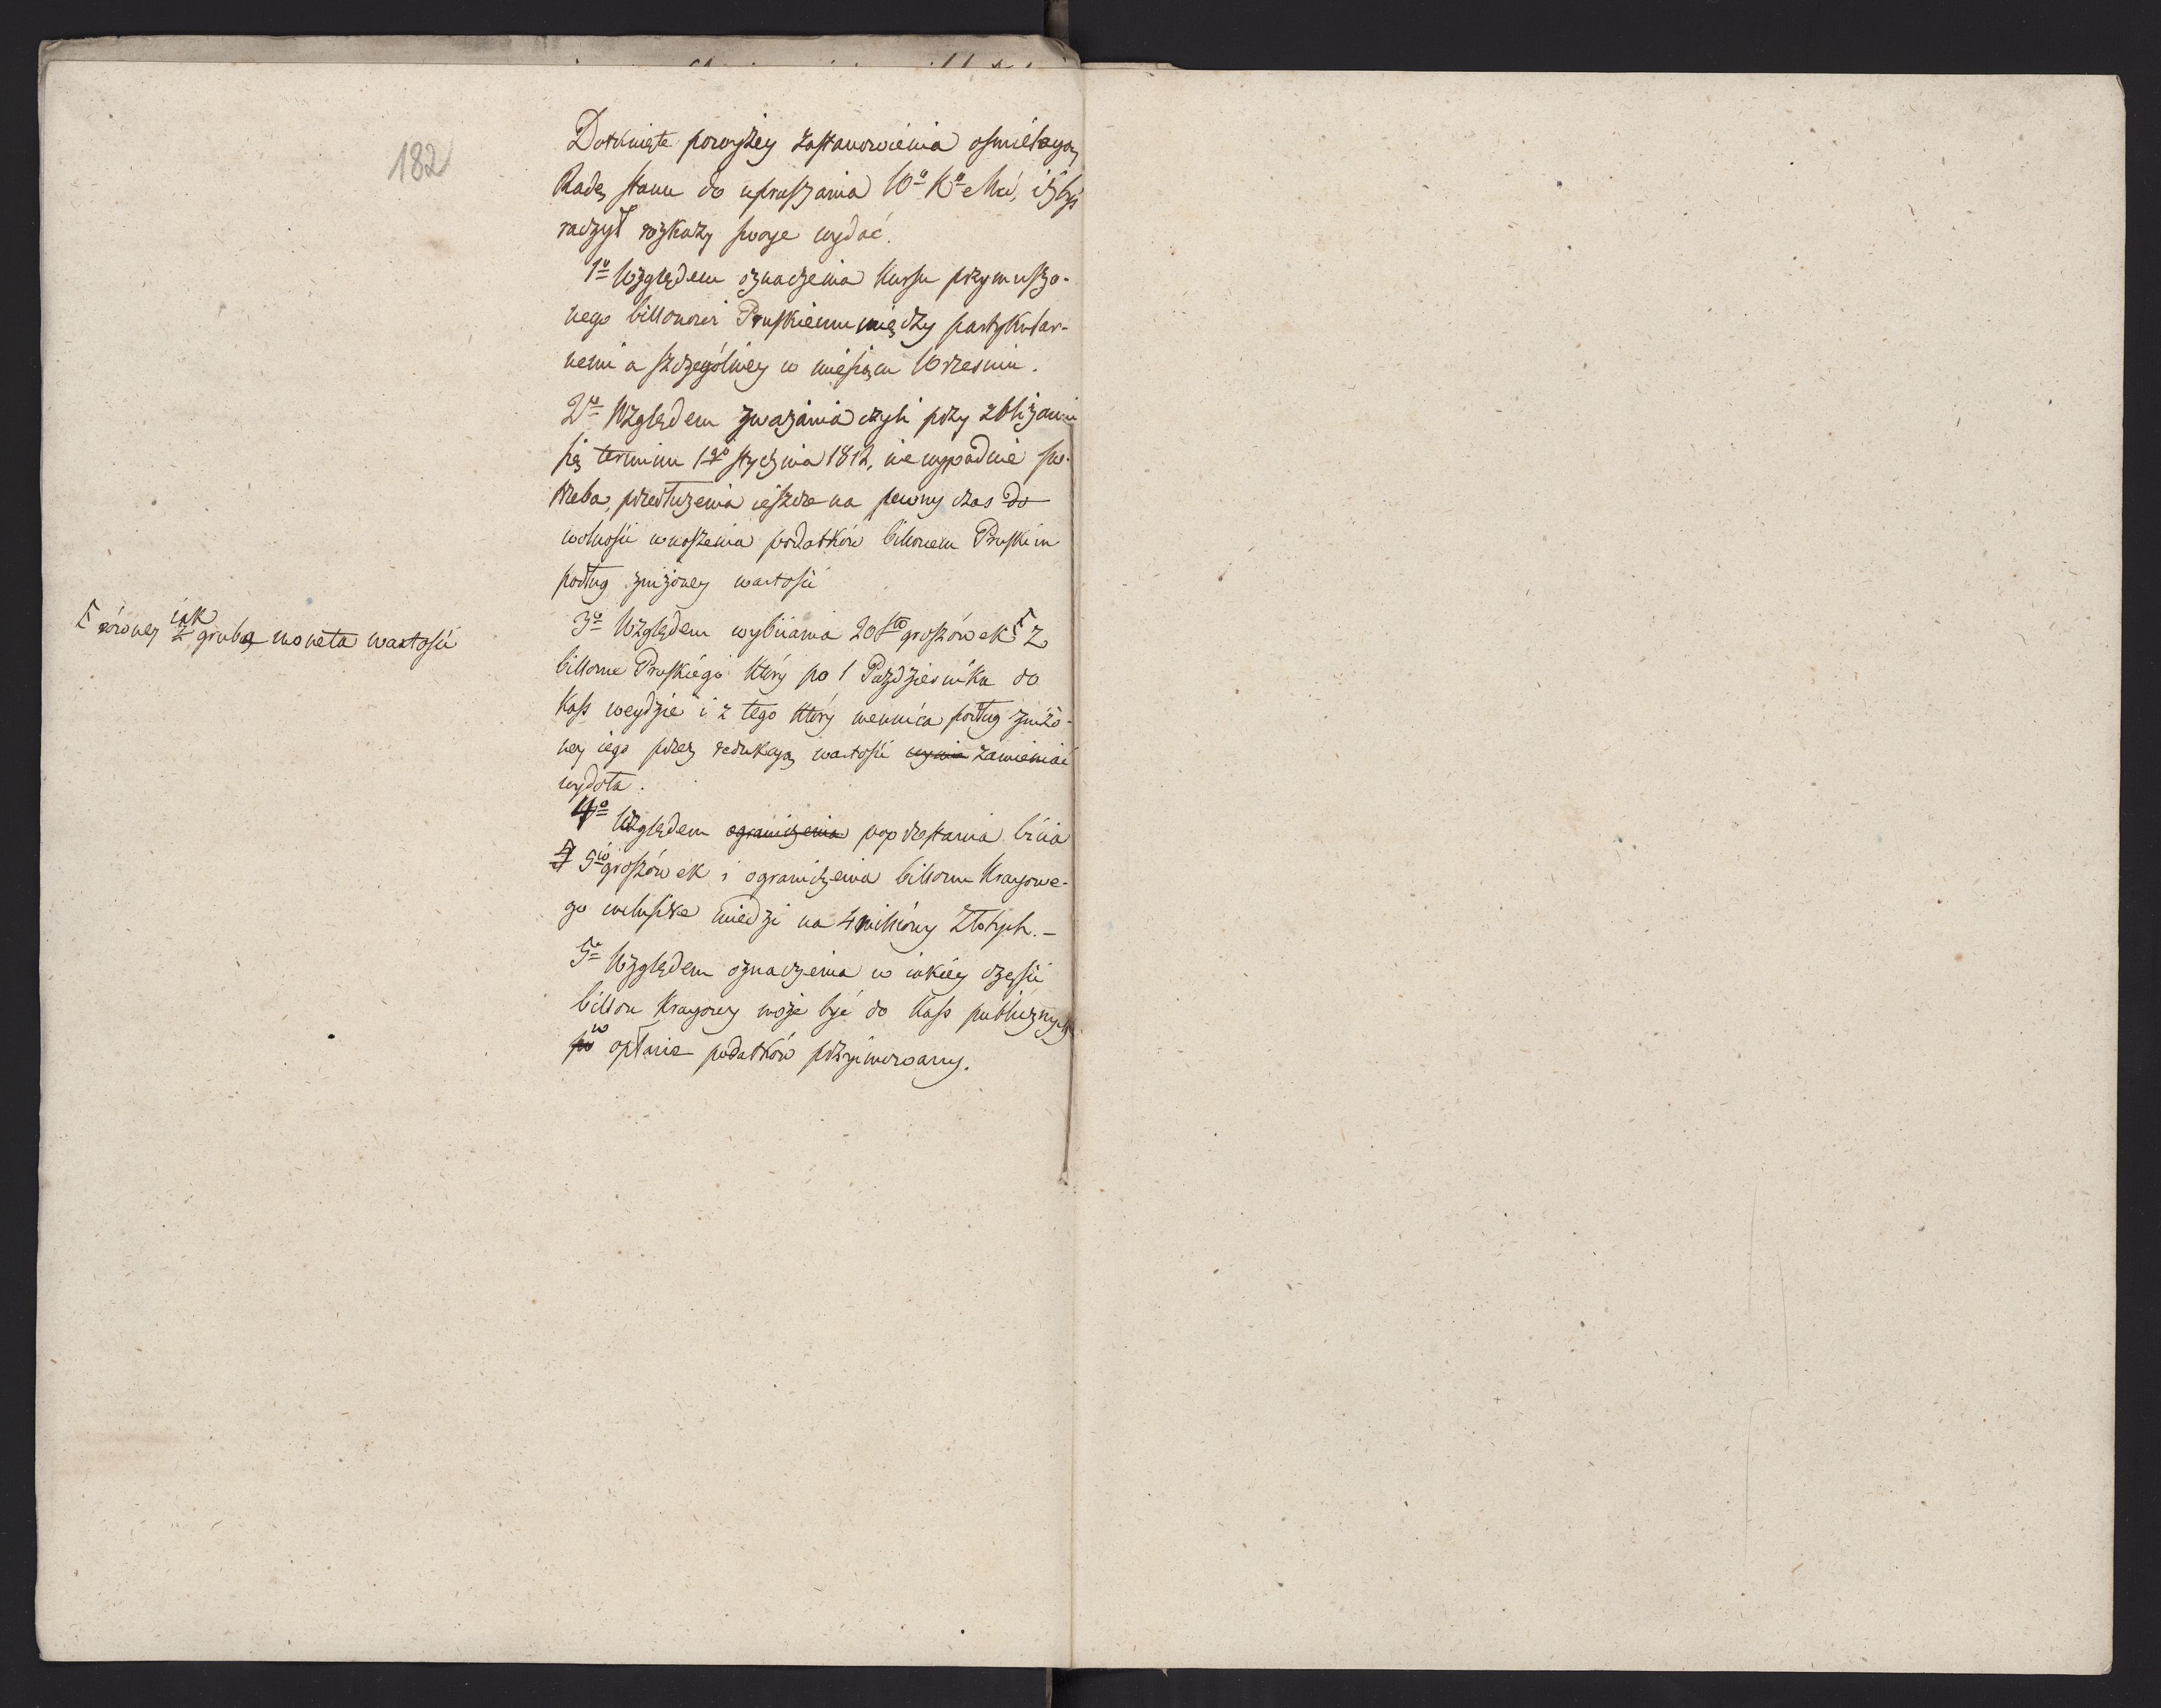 182
Dotknięte powyżey zastanowienia osmielaią
Radę stanu do upraszania Wa Ka Mci, iżbyś
raczył rozkazy swoje wydać.
1o Względem oznaczenia kursu przymuszo-
nego billonowi Pruskiemu między partykular-
nemi a szczegolniey w miesiącu Wrzesniu.
2o Względem zważania czyli przy zbliżaniu
się terminu 1go stycznia 1812, nie wypadnie po-
trzeba, przedłużenia ieszcze na pewny czas do
wolności wnoszenia podatków billonem Pruskim
podług zniżoney wartości
3o Względem wybiiania 20sto groszówek ꟻ z
ꟻ równey iak z grubą moneta wartości
billonu Pruskiego który po 1 Pazdziernika do
kass weydzie i z tego który mennica podług zniżo-
ney iego przez redukcyą wartości wymie zamieniać
wydoła.
4o Względem ograniczenia poprzestania bicia
5cio groszówek i ograniczenia billonu kraiowe-
go wcelności miedzi na 4 miliony złotych. –
5o Względem oznaczenia w iakiey części
billon kraiowy może być do kass publicznych
po w opłacie podatków przyimowany.